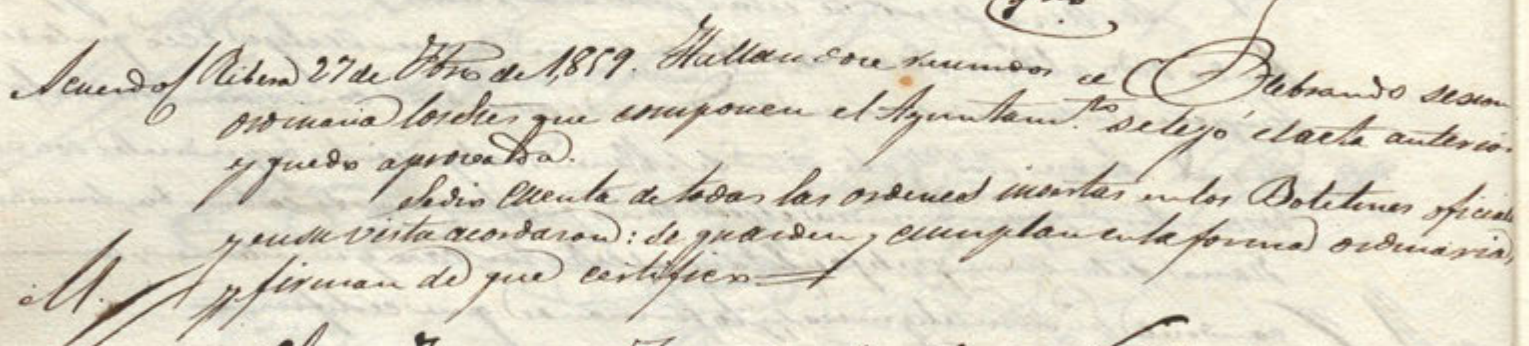 Acuerdo / Ribera 27 de Fbro de 1,859. Hallandose reunidos celebrando sesion
ordinaria los Sres que componen el Ayuntam.to se leyó el acta anterior
y quedo aprovada.
Se dio cuenta de todas las ordenes insertas en los Boletines oficiales
y en su vista acordaron: se guarden y cumplan en la forma ordinaria,
y firman de que certifico
M.